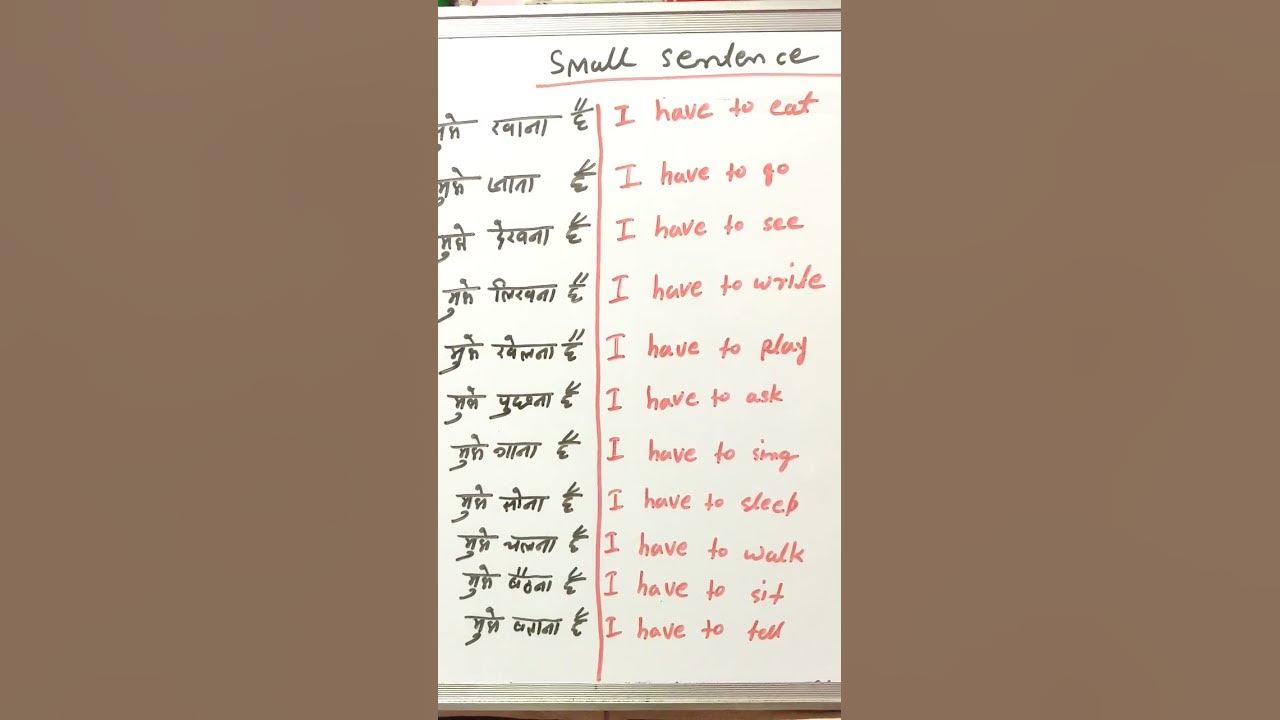 Small sentence
मुझे खाना है I have to eat
मुझे जाना है I have to go
मुझे देखना है I have to see
मुझे लिखना है I have to write
मुझे खेलना है I have to play
मुझे पुछना है I have to ask
मुझे गाना है I have to sing
मुझे सोना है I have to sleep
मुझे चलना है I have to walk
मुझे बैठना है I have to sit
मुझे बताना है I have to tell